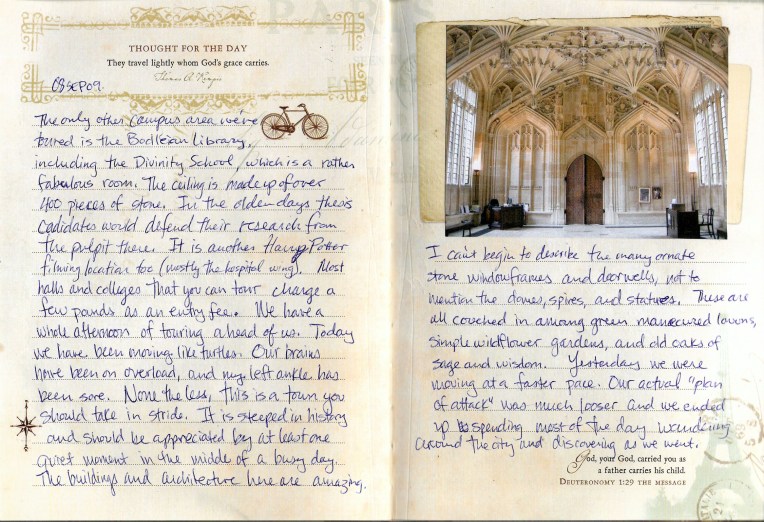 THOUGHT FOR THE DAY
They travel lightly whom God's grace carries.
Thomas à Kempis
08SEP09.
The only other campus area we've
toured is the Bodleian Library,
including the Divinity School, which is a rather
fabulous room. The ceiling is made up of over
400 pieces of stone. In the olden days thesis
cadidates would defend their research from
the pulpit there. It is another Harry Potter
filming location too (mostly the hospital wing). Most
halls and colleges that you can tour charge a
few pounds as an entry fee. We have a
whole afternoon of touring ahead of us. Today
we have been moving like turtles. Our brains
have been on overload, and my left ankle has
been sore. None the less, this is a town you
should take in stride. It is steeped in history
and should be appreciated by at least one
quiet moment in the middle of a busy day.
The buildings and architecture here are amazing.
I can't begin to describe the many ornate
stone windowframes and doorwells, not to
mention the domes, spires, and statues. These are
all couched in among green manecured lawns,
simple wildflower gardens, and old oaks of
sage and wisdom. Yesterday we were
moving at a faster pace. Our actual "plan
of attack" was much looser and we ended
up spending most of the day wandering
around the city and discovering as we went.
God, your God, carried you as
a father carries his child.
DEUTERONOMY 1:29 THE MESSAGE
PARIS